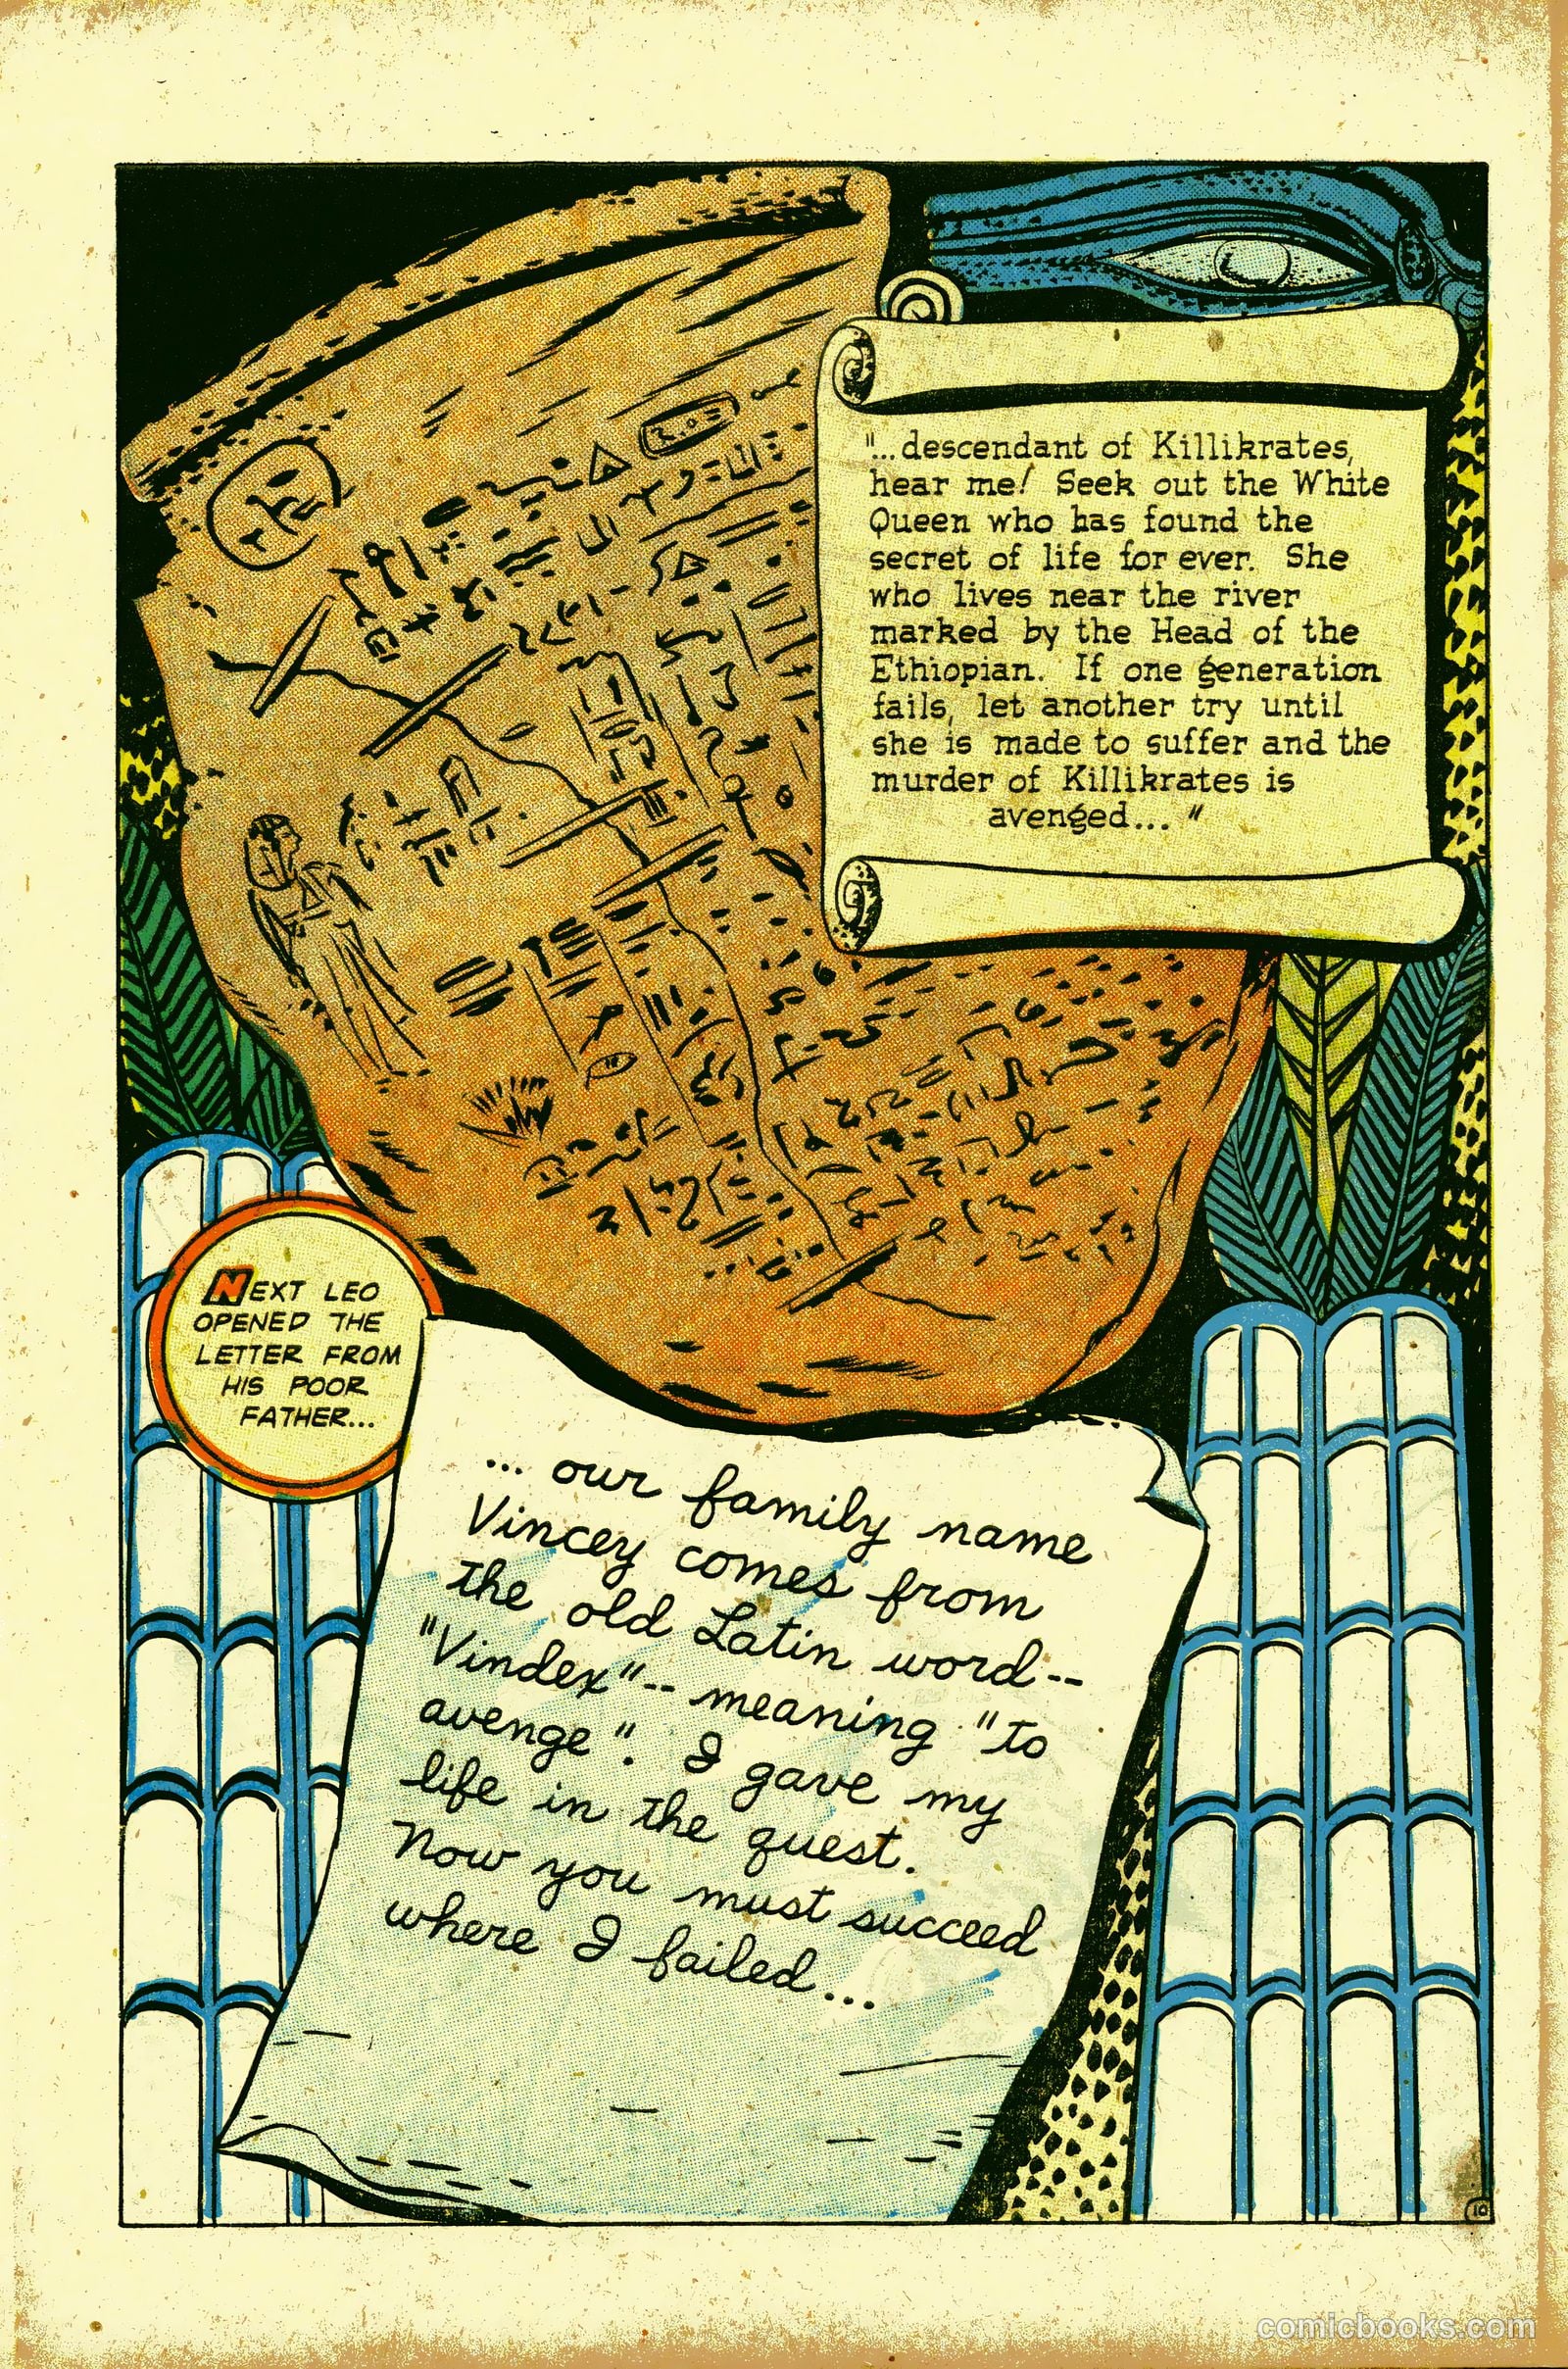 "...descendant of Killikrates,
hear me! Seek out the White
Queen who has found the
secret of life for ever. She
who lives near the river
marked by the Head of the
Ethiopian. If one generation
fails, let another try until
she is made to suffer and the
murder of Killikrates is
avenged..."
NEXT LEO
OPENED THE
LETTER FROM
HIS POOR
FATHER...
... our family name
Vincey comes from
the old Latin word--
"Vindex"-- meaning "to
avenge". I gave my
life in the quest.
Now you must succeed
where I failed...
10
comicbooks.com